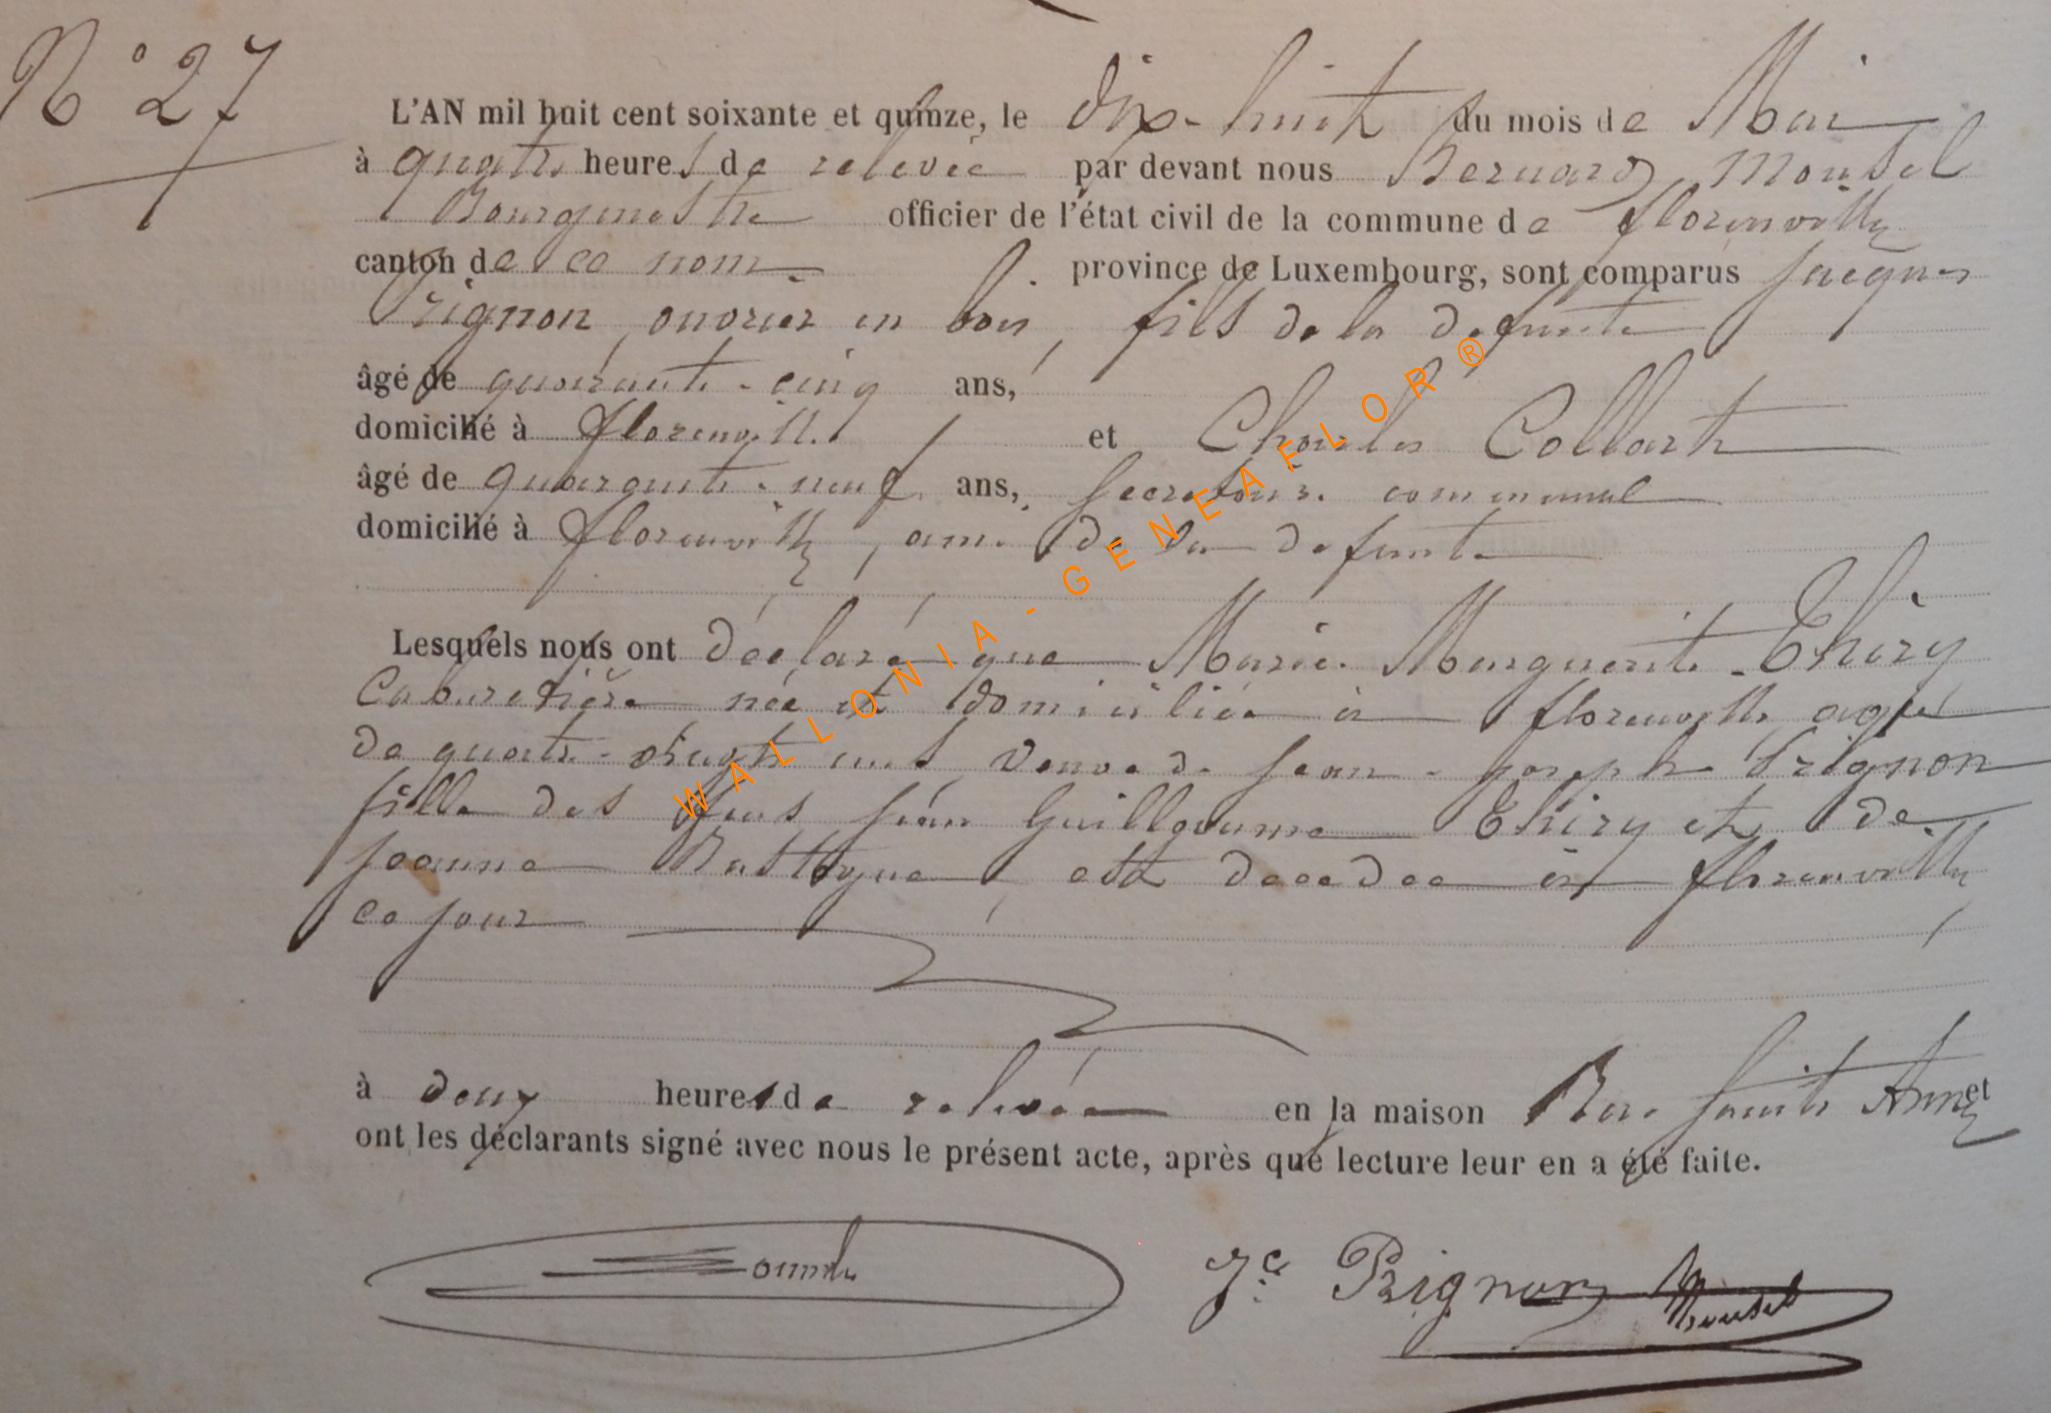 N° 27
L'AN mil huit cent soixante et quinze, le dix-huit du mois de Mai
à quatre heures de relevée par devant nous Bernard Mousel
Bourgmestre officier de l'état civil de la commune de florenville
canton de ce nom province de Luxembourg, sont comparus Jacques
Prignon, ouvrier en bois, fils de la défunte
âgé de quarante-cinq ans,
domicilié à florenville et Charles Collart
âgé de quarante-neuf ans, secrétaire communal
domicilié à florenville, ami de la defunte
Lesquels nous ont déclaré que Marie Marguerite Thiry
Cabaretière née et domiciliée à florenville agée
de quatre-vingt ans veuve de jean-joseph Prignon
fille des feus jean Guillaume Thiry et de
jeanne Bastogne, est decedee à florenville
ce jour
à deux heures de relevée en la maison Rue Sainte Anne et
ont les déclarants signé avec nous le présent acte, après que lecture leur en a été faite.
Jc Prignon Mousel
WALLONIA - GENEAFLOR ®